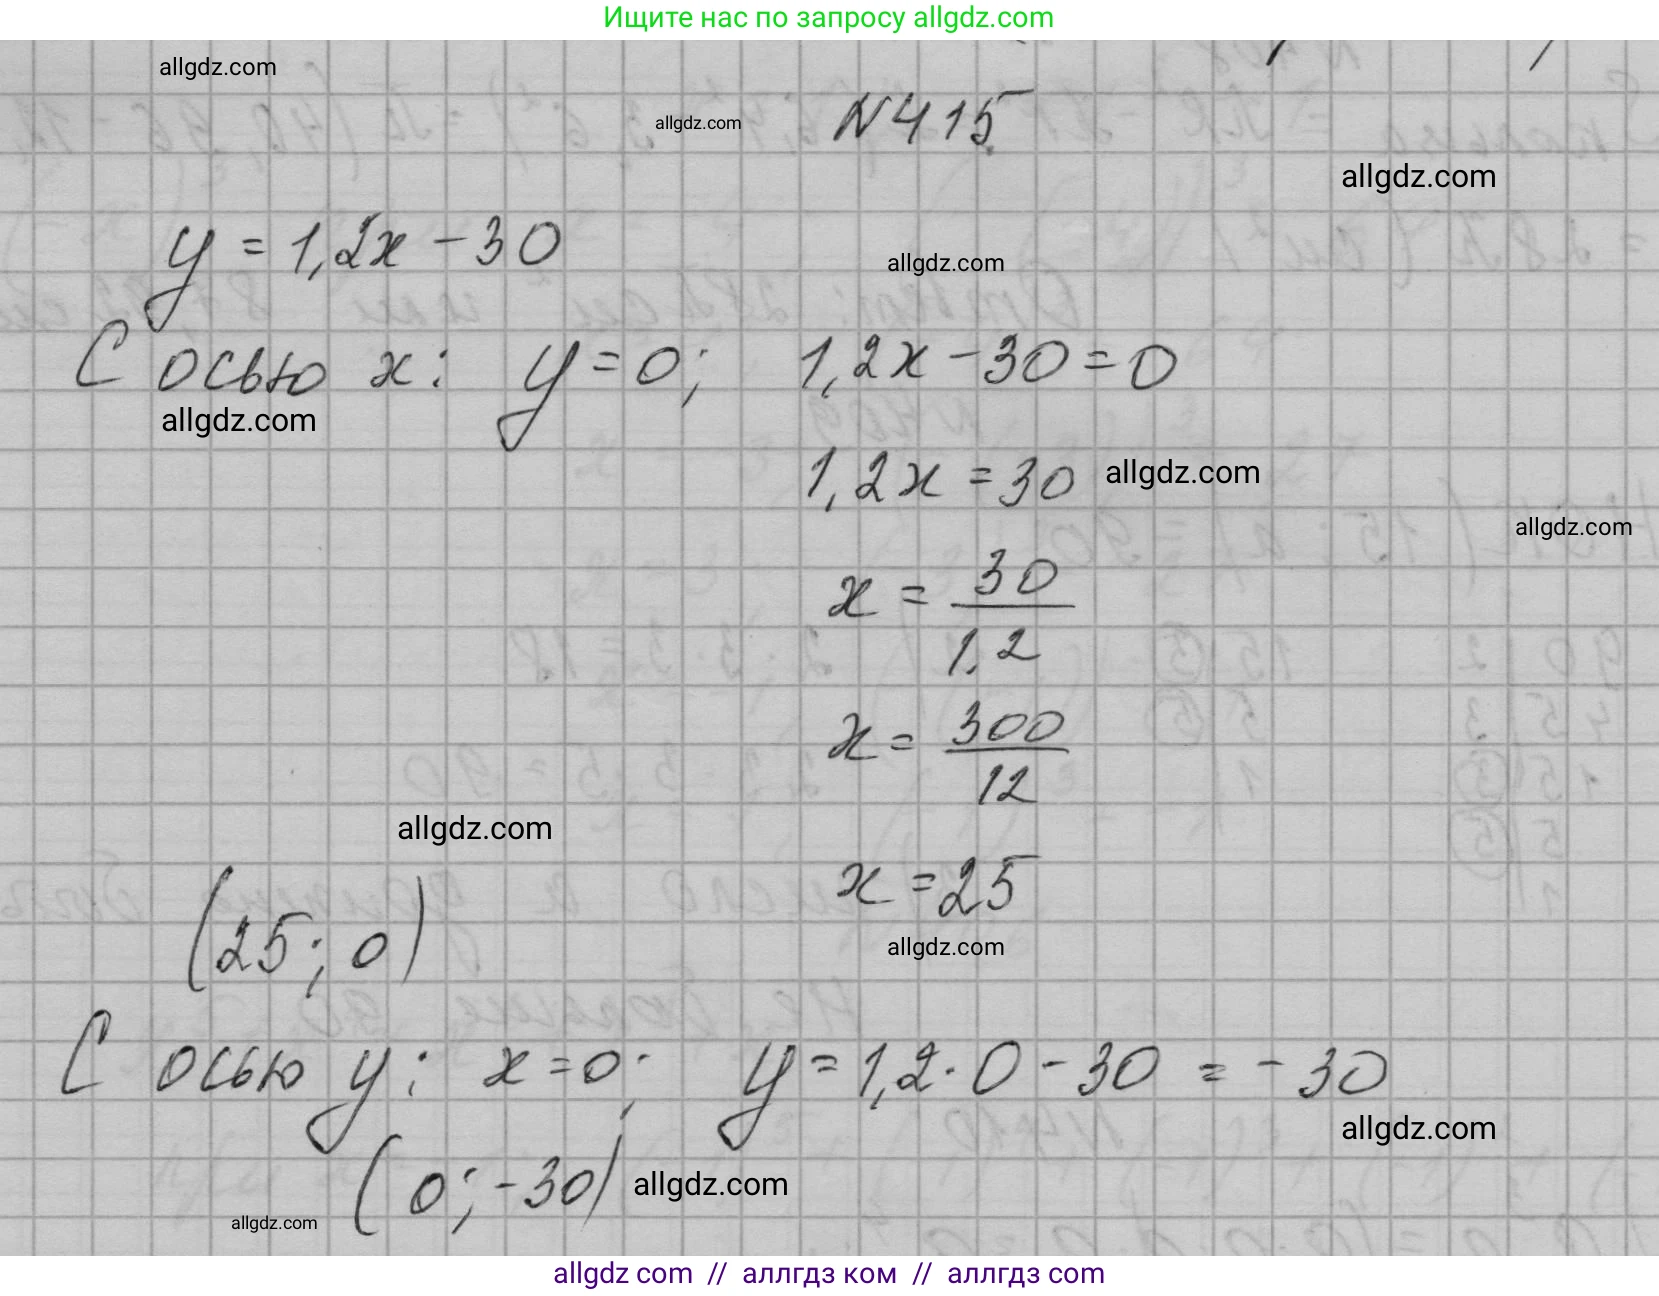 Ищите нас по запросу allgdz.com
allgdz.com
allgdz.com
N415
allgdz.com
y = 1,2x - 30
allgdz.com
С осью x: y = 0; 1,2x - 30 = 0
allgdz.com
1,2x = 30
allgdz.com
allgdz.com
x = 30/1,2
x = 300/12
allgdz.com
x = 25
(25; 0)
allgdz.com
С осью y: x = 0; y = 1,2 · 0 - 30 = -30
allgdz.com
(0; -30)
allgdz.com
allgdz.com
allgdz com // аллгдз ком // аллгдз com